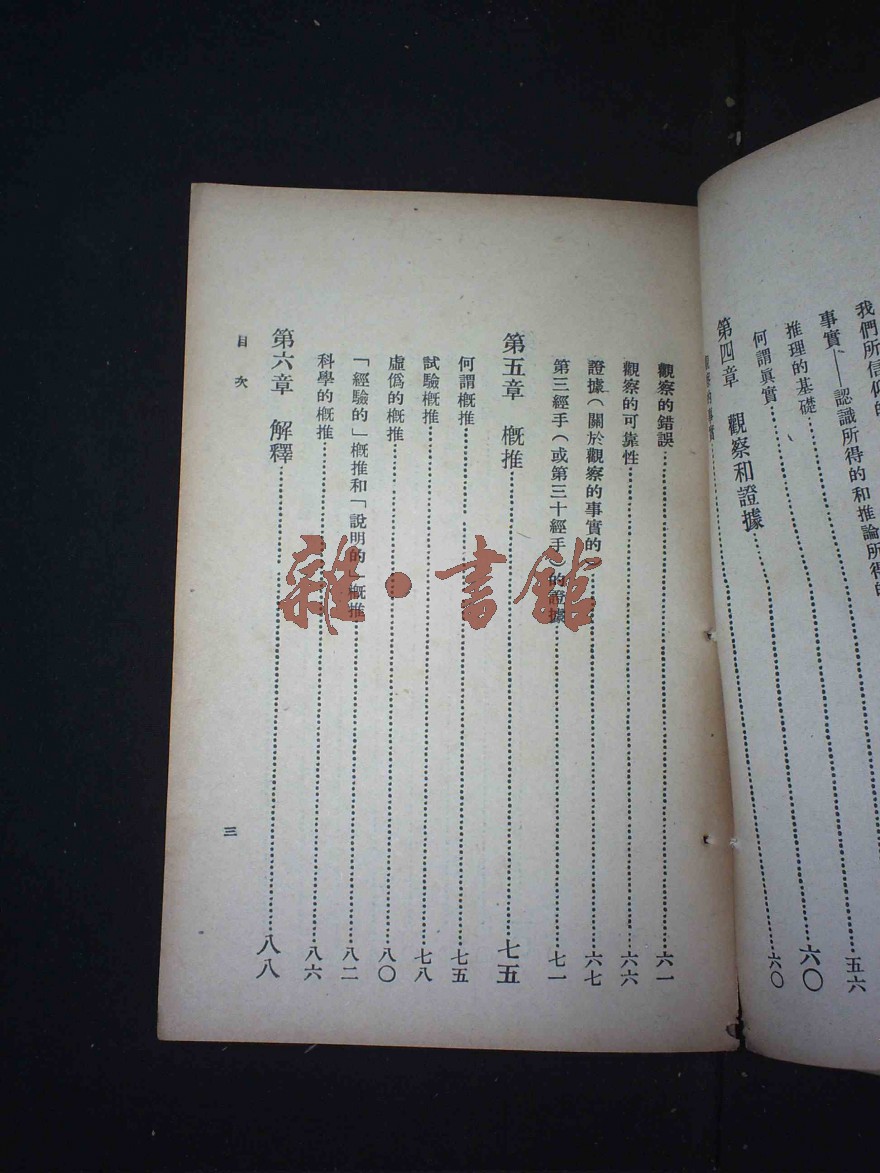 我們所信仰的
事實——認識所得的和推論所得的
推理的基礎
何謂眞實……五六
第四章　觀察和證據……六〇
觀察的事實……六〇
觀察的錯誤……六一
觀察的可靠性……六六
證據(關於觀察的事實的)……六七
第三經手(或第三十經手)的證據……七一
第五章　概推……七五
何謂概推……七五
試驗概推……七八
虛僞的概推……八〇
「經驗的」概推和「說明的」概推……八二
科學的概推……八六
第六章　解釋……八八
目次
三
雜·書館